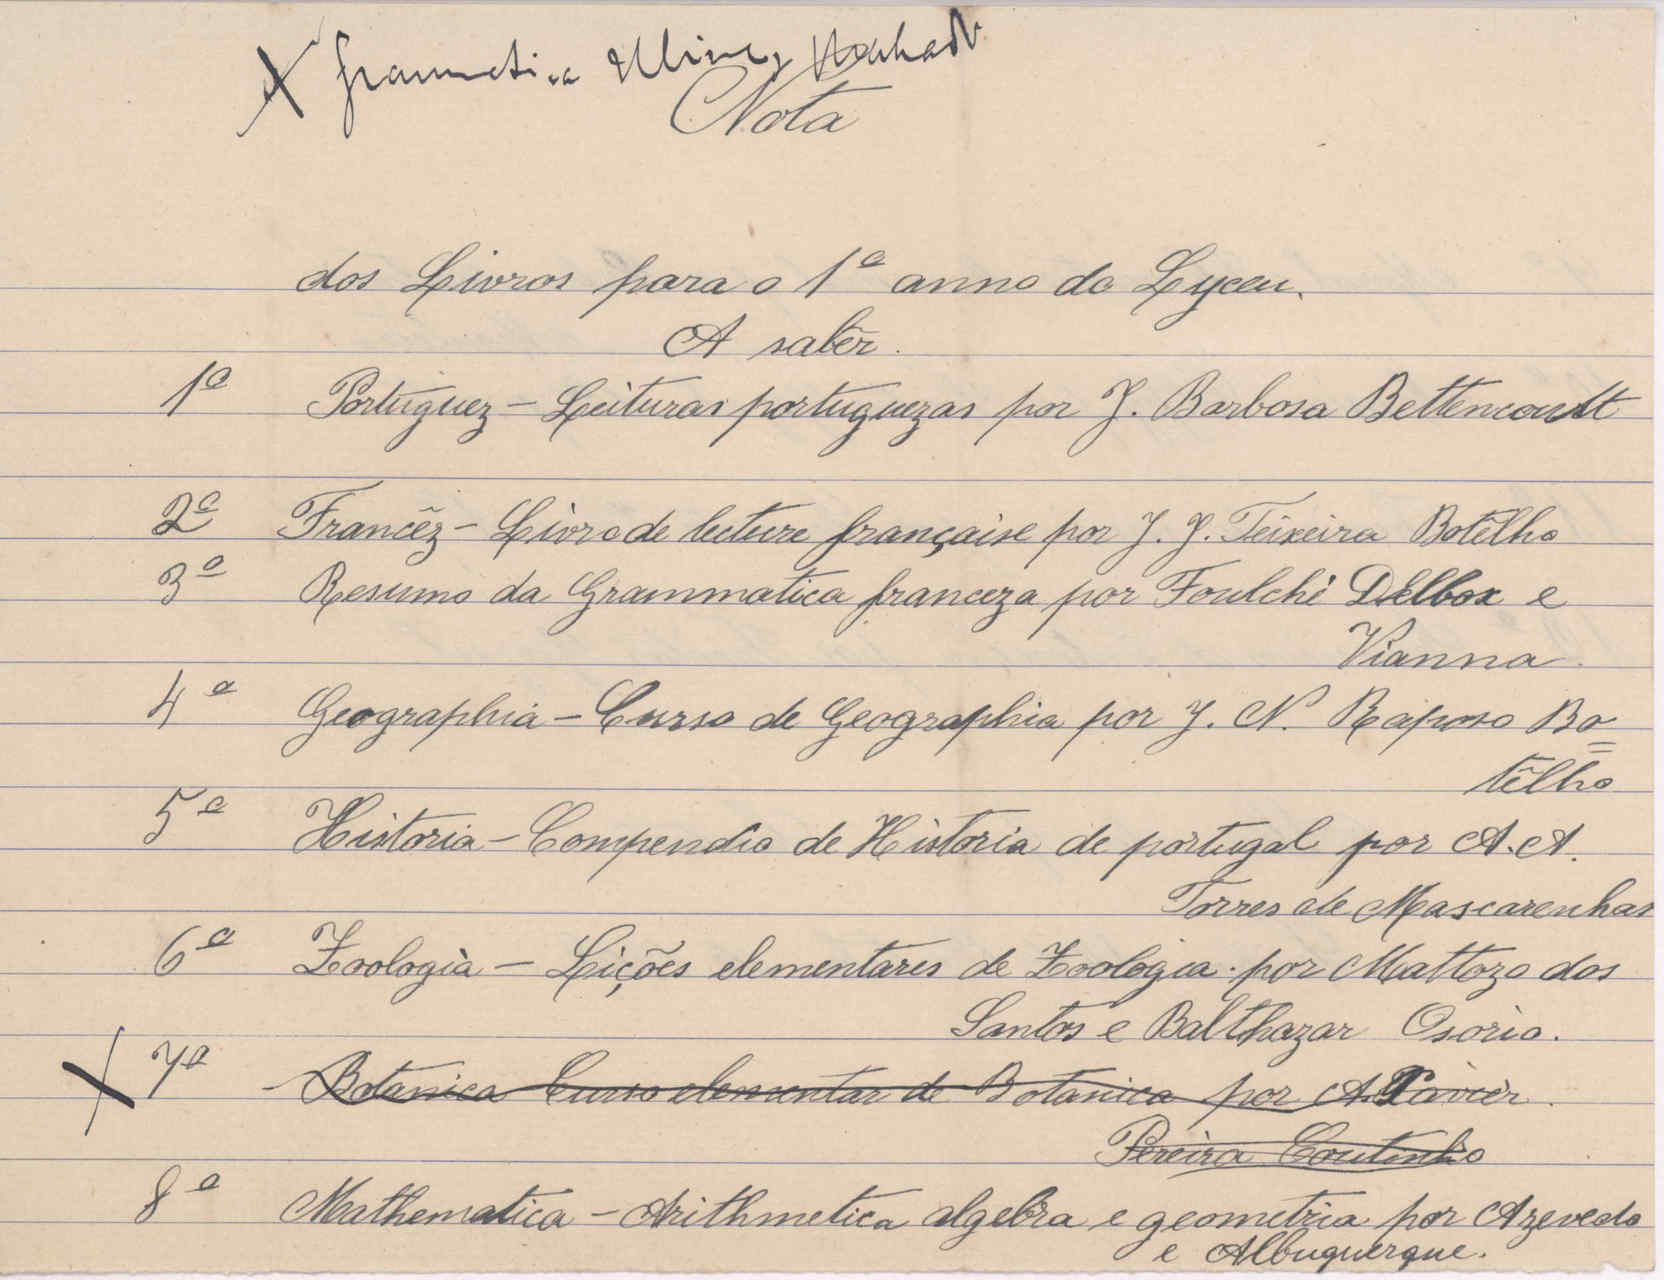 X Grammatica Ulisses Machado
Nota
dos Livros para o 1º anno do Lyceu.
A sabêr.
1ª Portuguez - Leituras portuguezas por J. Barbosa Bettencourt
2ª Francêz - Livro de lecture française por J. J. Teixeira Botêlho
3ª Resumo da Grammatica franceza por Foulché Délbox e
Vianna.
4ª Geographia - Curso de Geographia por J. N. Raposo Bo=
têlho
5ª Historia - Compendio de Historia de portugal por A. A.
Torres de Mascarenhas
6ª Zoologia - Lições elementares de Zoologia por Mattozo dos
Santos e Balthazar Osorio.
X 7ª Botanica Curso elementar de Botanica por A. Xavier.
Pereira Coutinho
8ª Mathematica - Arithmetica algebra e geometria por Azevedo
e Albuquerque.